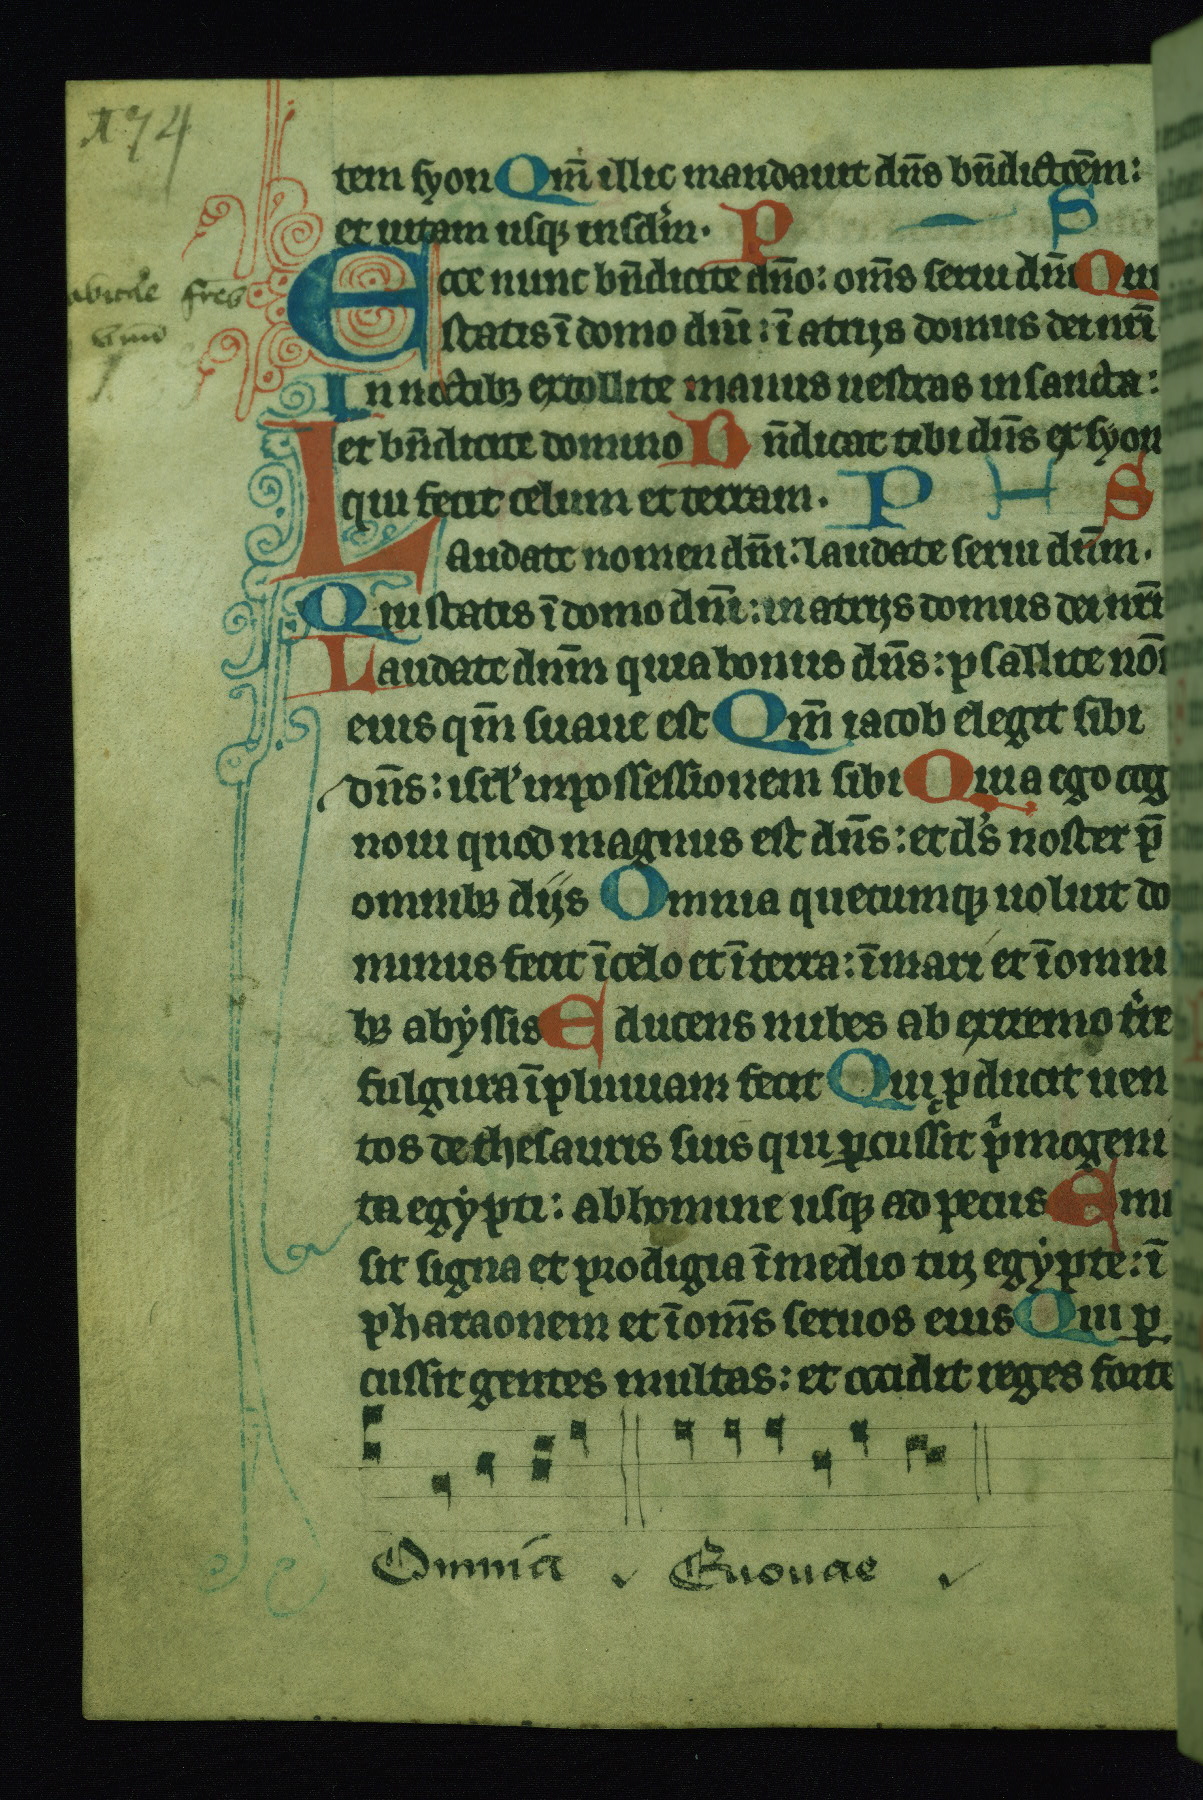 174
tem syon Qm̄ illic mandauit dn̄s bn̄dictēm:
et uitam usq; in sclm̄. P S
Ecce nunc bn̄dicite dn̄o: om̄s serui dn̄i Qui
statis ī domo dn̄i: ī atrijs domus dei nr̄i
In noctib; extollite manus uestras in sancta:
et bn̄dicite domino Bn̄dicat tibi dn̄s ex syon
qui fecit celum et terram. P H S
Laudate nomen dn̄i: laudate serui dn̄m.
Qui statis ī domo dn̄i: in atrijs domus dei nr̄i
Laudate dn̄m quia bonus dn̄s: psallite nōi
eius qm̄ suaue est Qm̄ iacob elegit sibi
dn̄s: isrl' in possessionem sibi Quia ego cog
noui quod magnus est dn̄s: et ds̄ noster p̄
omnib; dijs Omnia quecumq; uoluit do
minus fecit ī celo et ī terra: ī mari et ī omni
b; abyssis Educens nubes ab extremo t're
fulgura ī pluuiam fecit Qui ꝓducit uen
tos de thesauris suis qui ꝑcussit p'mogeni
ta egypti: ab homine usq; ad pecus Emi
sit signa et prodigia ī medio tui egypte: ī
pharaonem et ī om̄s seruos eius Qui ꝑ
cussit gentes multas: et occidit reges forte
Omnia Euouae